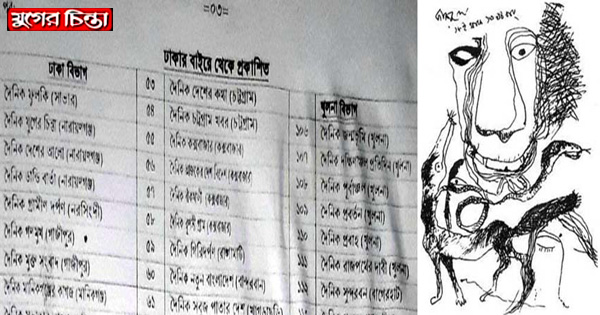 যুগের চিন্তা
=০৩=
ঢাকার বাইরে থেকে প্রকাশিত
ঢাকা বিভাগ
দৈনিক ফুলকি (সাভার)
দৈনিক যুগের চিন্তা (নারায়ণগঞ্জ)
দৈনিক দেশের আলো (নারায়ণগঞ্জ)
দৈনিক বার্তা (নারায়ণগঞ্জ)
দৈনিক গ্রামীণ দর্পণ (নরসিংদী)
দৈনিক গণমুখ (গাজীপুর)
দৈনিক মুক্ত সংবাদ (গাজীপুর)
দৈনিক মানিকগঞ্জের কাগজ (মানিকগঞ্জ)
৫৩ দৈনিক দেশের কথা (চট্টগ্রাম)
৫৪ দৈনিক চট্টগ্রাম খবর (চট্টগ্রাম)
৫৫ দৈনিক কক্সবাজার (কক্সবাজার)
৫৬ দৈনিক (কক্সবাজার)
৫৭ দৈনিক (কক্সবাজার)
৫৮ দৈনিক (কক্সবাজার)
৫৯ দৈনিক গিরিদর্পণ (রাঙ্গামাটি)
৬০ দৈনিক নতুন বাংলাদেশ (বান্দরবন)
৬১ দৈনিক সবুজ পাতার দেশ (খাগড়াছড়ি)
খুলনা বিভাগ
১০৬ দৈনিক জন্মভূমি (খুলনা)
১০৭ দৈনিক দক্ষিণাঞ্চল প্রতিদিন (খুলনা)
১০৮ দৈনিক পূর্বাঞ্চল (খুলনা)
১০৯ দৈনিক প্রবর্তন (খুলনা)
১১০ দৈনিক প্রবাহ (খুলনা)
১১১ দৈনিক রাজপথের দাবী (খুলনা)
১১২ দৈনিক সুন্দরবন (বাগেরহাট)